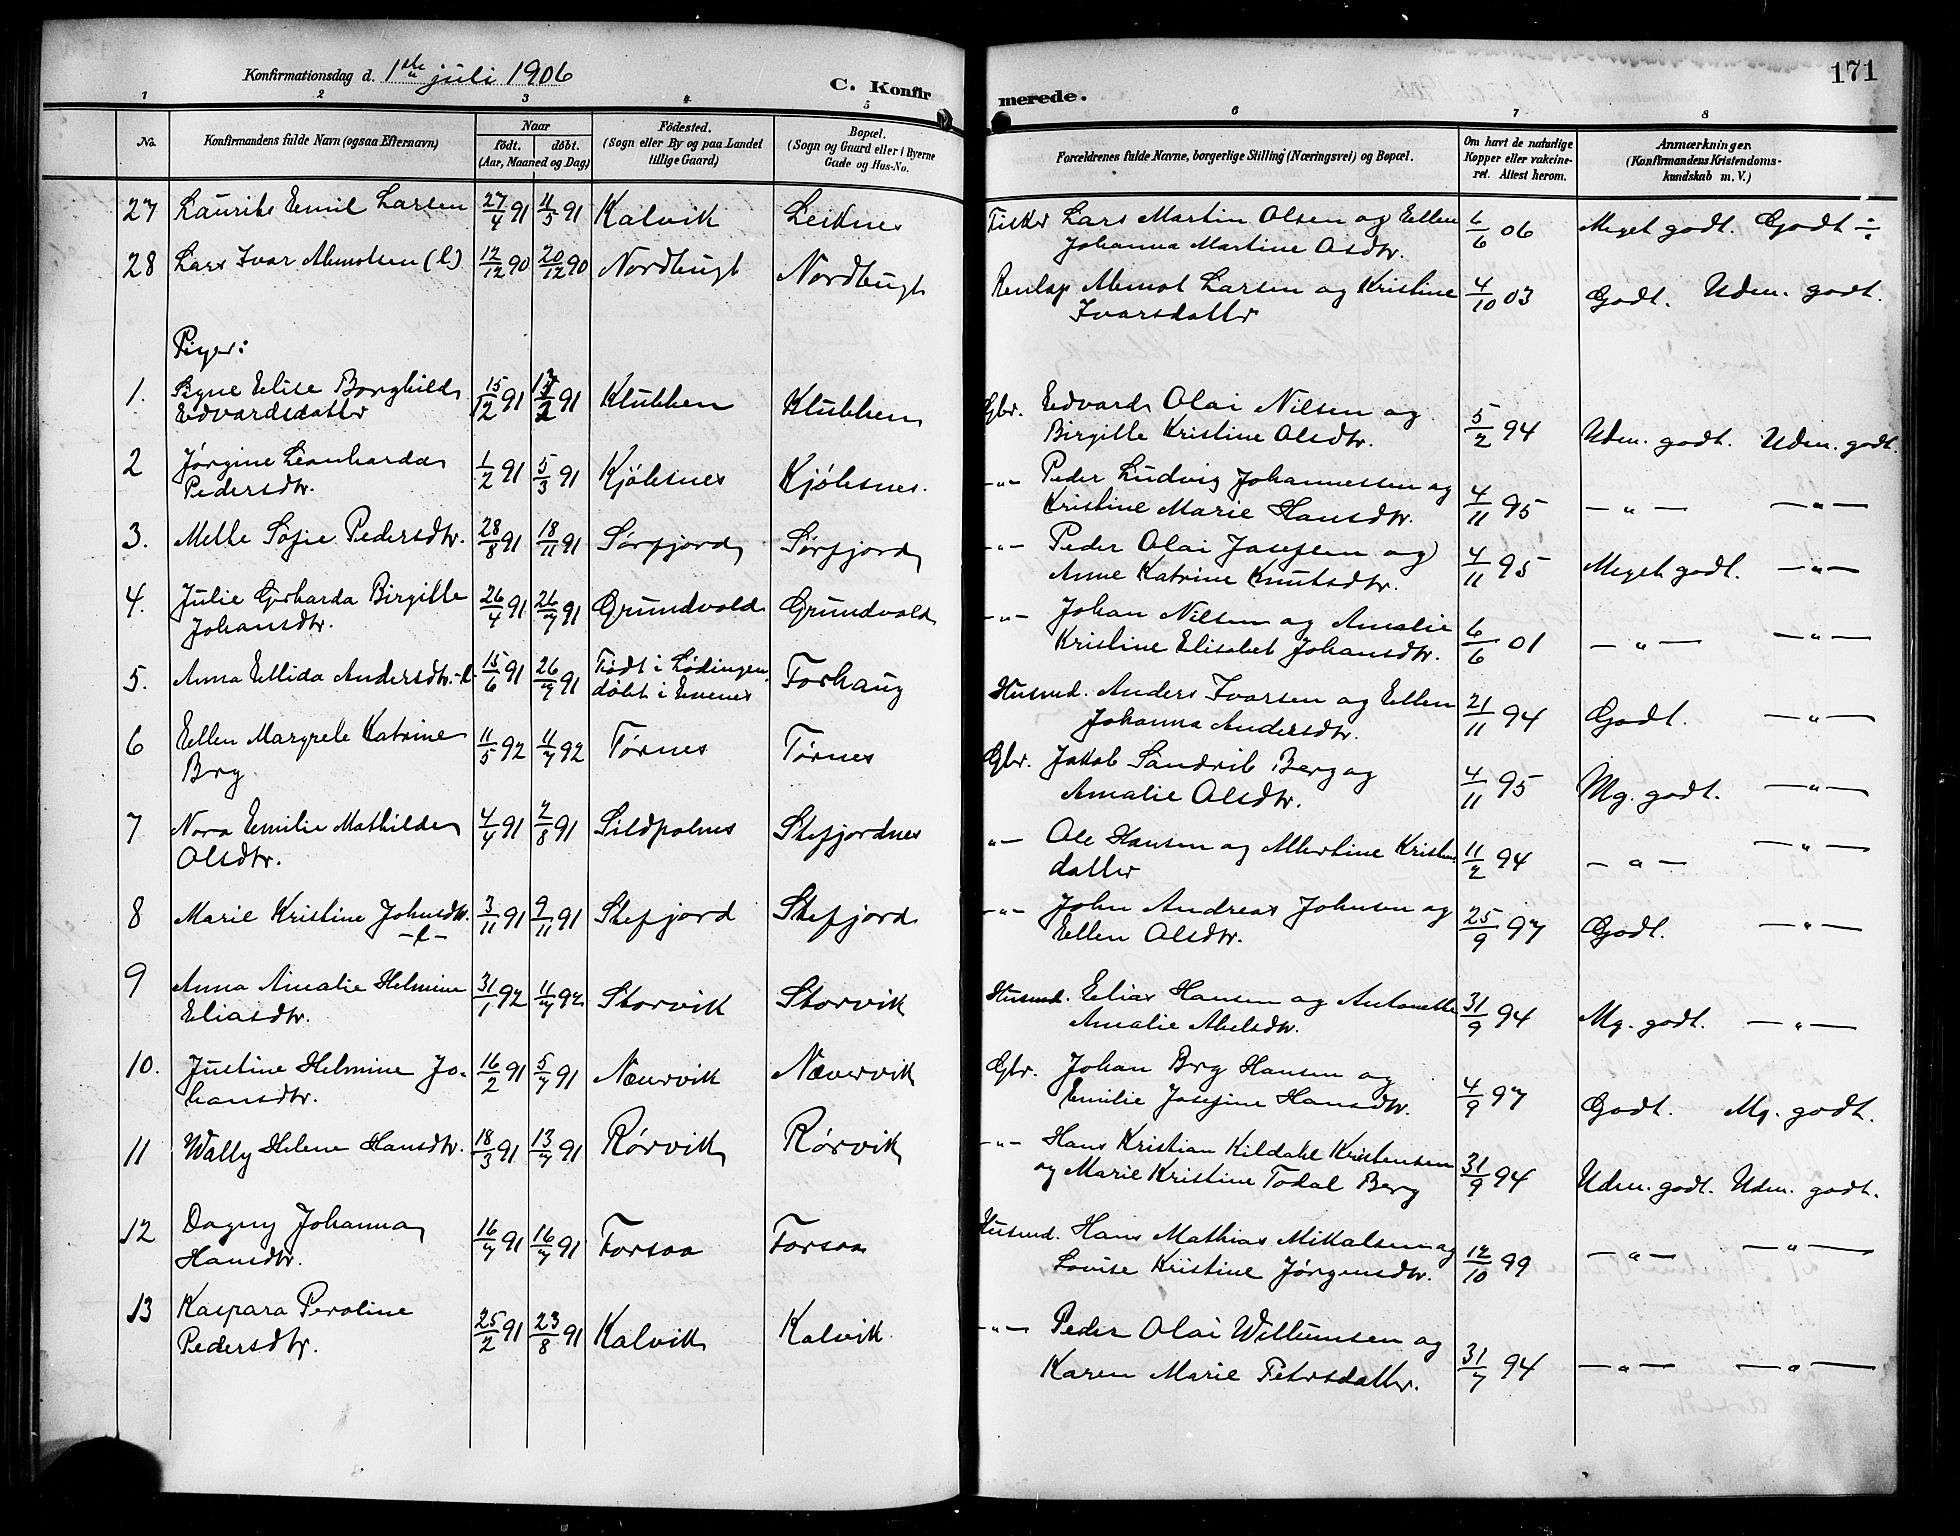 171
Konfirmationsdag d. 1ste juli 1906
C. Konfirmerede.
1 2 3 4 5 6 7 8
No. Konfirmandens fulde Navn (ogsaa Efternavn) Naar født. døbt. (Aar, Maaned og Dag) Fødested. (Sogn eller By og paa Landet tillige Gaard) Bopæl. (Sogn og Gaard eller i Byerne Gade og Hus-No. Forældrenes fulde Navne, borgerlige Stilling (Næringsvei) og Bopæl. Om havt de naturlige Kopper eller vakcineret. Attest herom. Anmærkninger. (Konfirmandens Kristendomskundskab m. V.)
27 Laurits Emil Larsen 27/4 91 11/5 91 Kalvik Leiknes Fisker Lars Martin Olsen og Ellen 6/6 06 Meget godt. Godt ÷
Johanna Martine Olsdtr.
28 Lars Ivar Alemotsen (l) 12/12 90 20/12 90 Nordbugt Nordbugt Renlap Alemot Larsen og Kristine 4/10 03 Godt. Uden. godt.
Ivarsdatter
Piger:
1. Signe Elise Borghild 15/2 91 91 Klubben Klubben Gbr. Edvard Olai Nilsen og 5/2 94 Uden. godt. Uden. godt.
Edvardsdatter Birgitte Kristine Olsdtr.
2 Jørgine Leonharda 1/2 91 5/3 91 Kjølesnes Kjølesnes. -"- Peder Ludvig Johannessen og 4/11 95 -"- -"-
Pedersdtr. Kristine Marie Hansdtr.
3. Mette Sofie Pedersdtr. 28/8 91 18/11 91 Sørfjord Sørfjord -"- Peder Olai Josefsen og 4/11 95 Meget godt. -"-
Anne Katrine Knutsdtr.
4. Julie Gerharda Birgitte 26/4 91 26/7 91 Grundvold Grundvold -"- Johan Nilsen og Amalie 6/6 01 -"- -"-
Johansdtr. Kristine Elisabet Johansdtr.
5. Anna Ellida Andersdtr. -l- 15/6 91 26/7 91 Født i Lødingen, Forhaug Husmd. Anders Ivarsen og Ellen 21/11 94 Godt. -"-
døbt i Evenes Johanna Andersdtr.
6 Ellen Margrete Katrine 11/5 92 11/7 92 Tørnes Tørnes Gbr. Jakob Sandrib Berg og 4/11 95 Mg. godt. -"-
Berg Amalie Olsdtr.
7 Nora Emilie Mathilde 4/4 91 2/8 91 Sildpolnes Stefjordnes "- Ole Hansen og Albertine Kristen- 11/2 94 -"- -"-
Olsdtr. datter
8 Marie Kristine Johnsdtr. 3/11 91 9/11 91 Stefjord Stefjord -"- John Andreas Johnsen og 25/9 97 Godt. -"-
-l- Ellen Olsdtr.
9 Anna Amalie Helmine 31/1 92 11/7 92 Storvik Storvik Husmd. Elias Hansen og Antonette 31/9 94 Mg. godt. -"-
Eliasdtr. Amalie Abelsdtr.
10. Justine Helmine Jo- 16/2 91 5/7 91 Nævervik Nævervik Gbr. Johan Berg Hansen og 4/9 97 Godt. Mg. godt.
hansdtr. Emilie Josefine Hansdtr.
11 Wally Helene Hansdtr. 18/3 91 13/7 91 Rørvik Rørvik -"- Hans Kristian Kildahl Kristensen 31/9 94 Uden. godt. Uden. godt.
og Marie Kristine Todal Berg
12 Dagny Johanna 16/7 91 16/7 91 Forsaa Forsaa Husmd. Hans Mathias Mikalsen og 12/10 99 -"- -"-
Hansdtr. Lovise Kristine Jørgensdtr.
13 Kaspara Peroline 25/2 91 23/8 91 Kalvik Kalvik -"- Peder Olai Willumsen og 31/7 94 -"- -"-
Pedersdtr. Karen Marie Petersdatter.